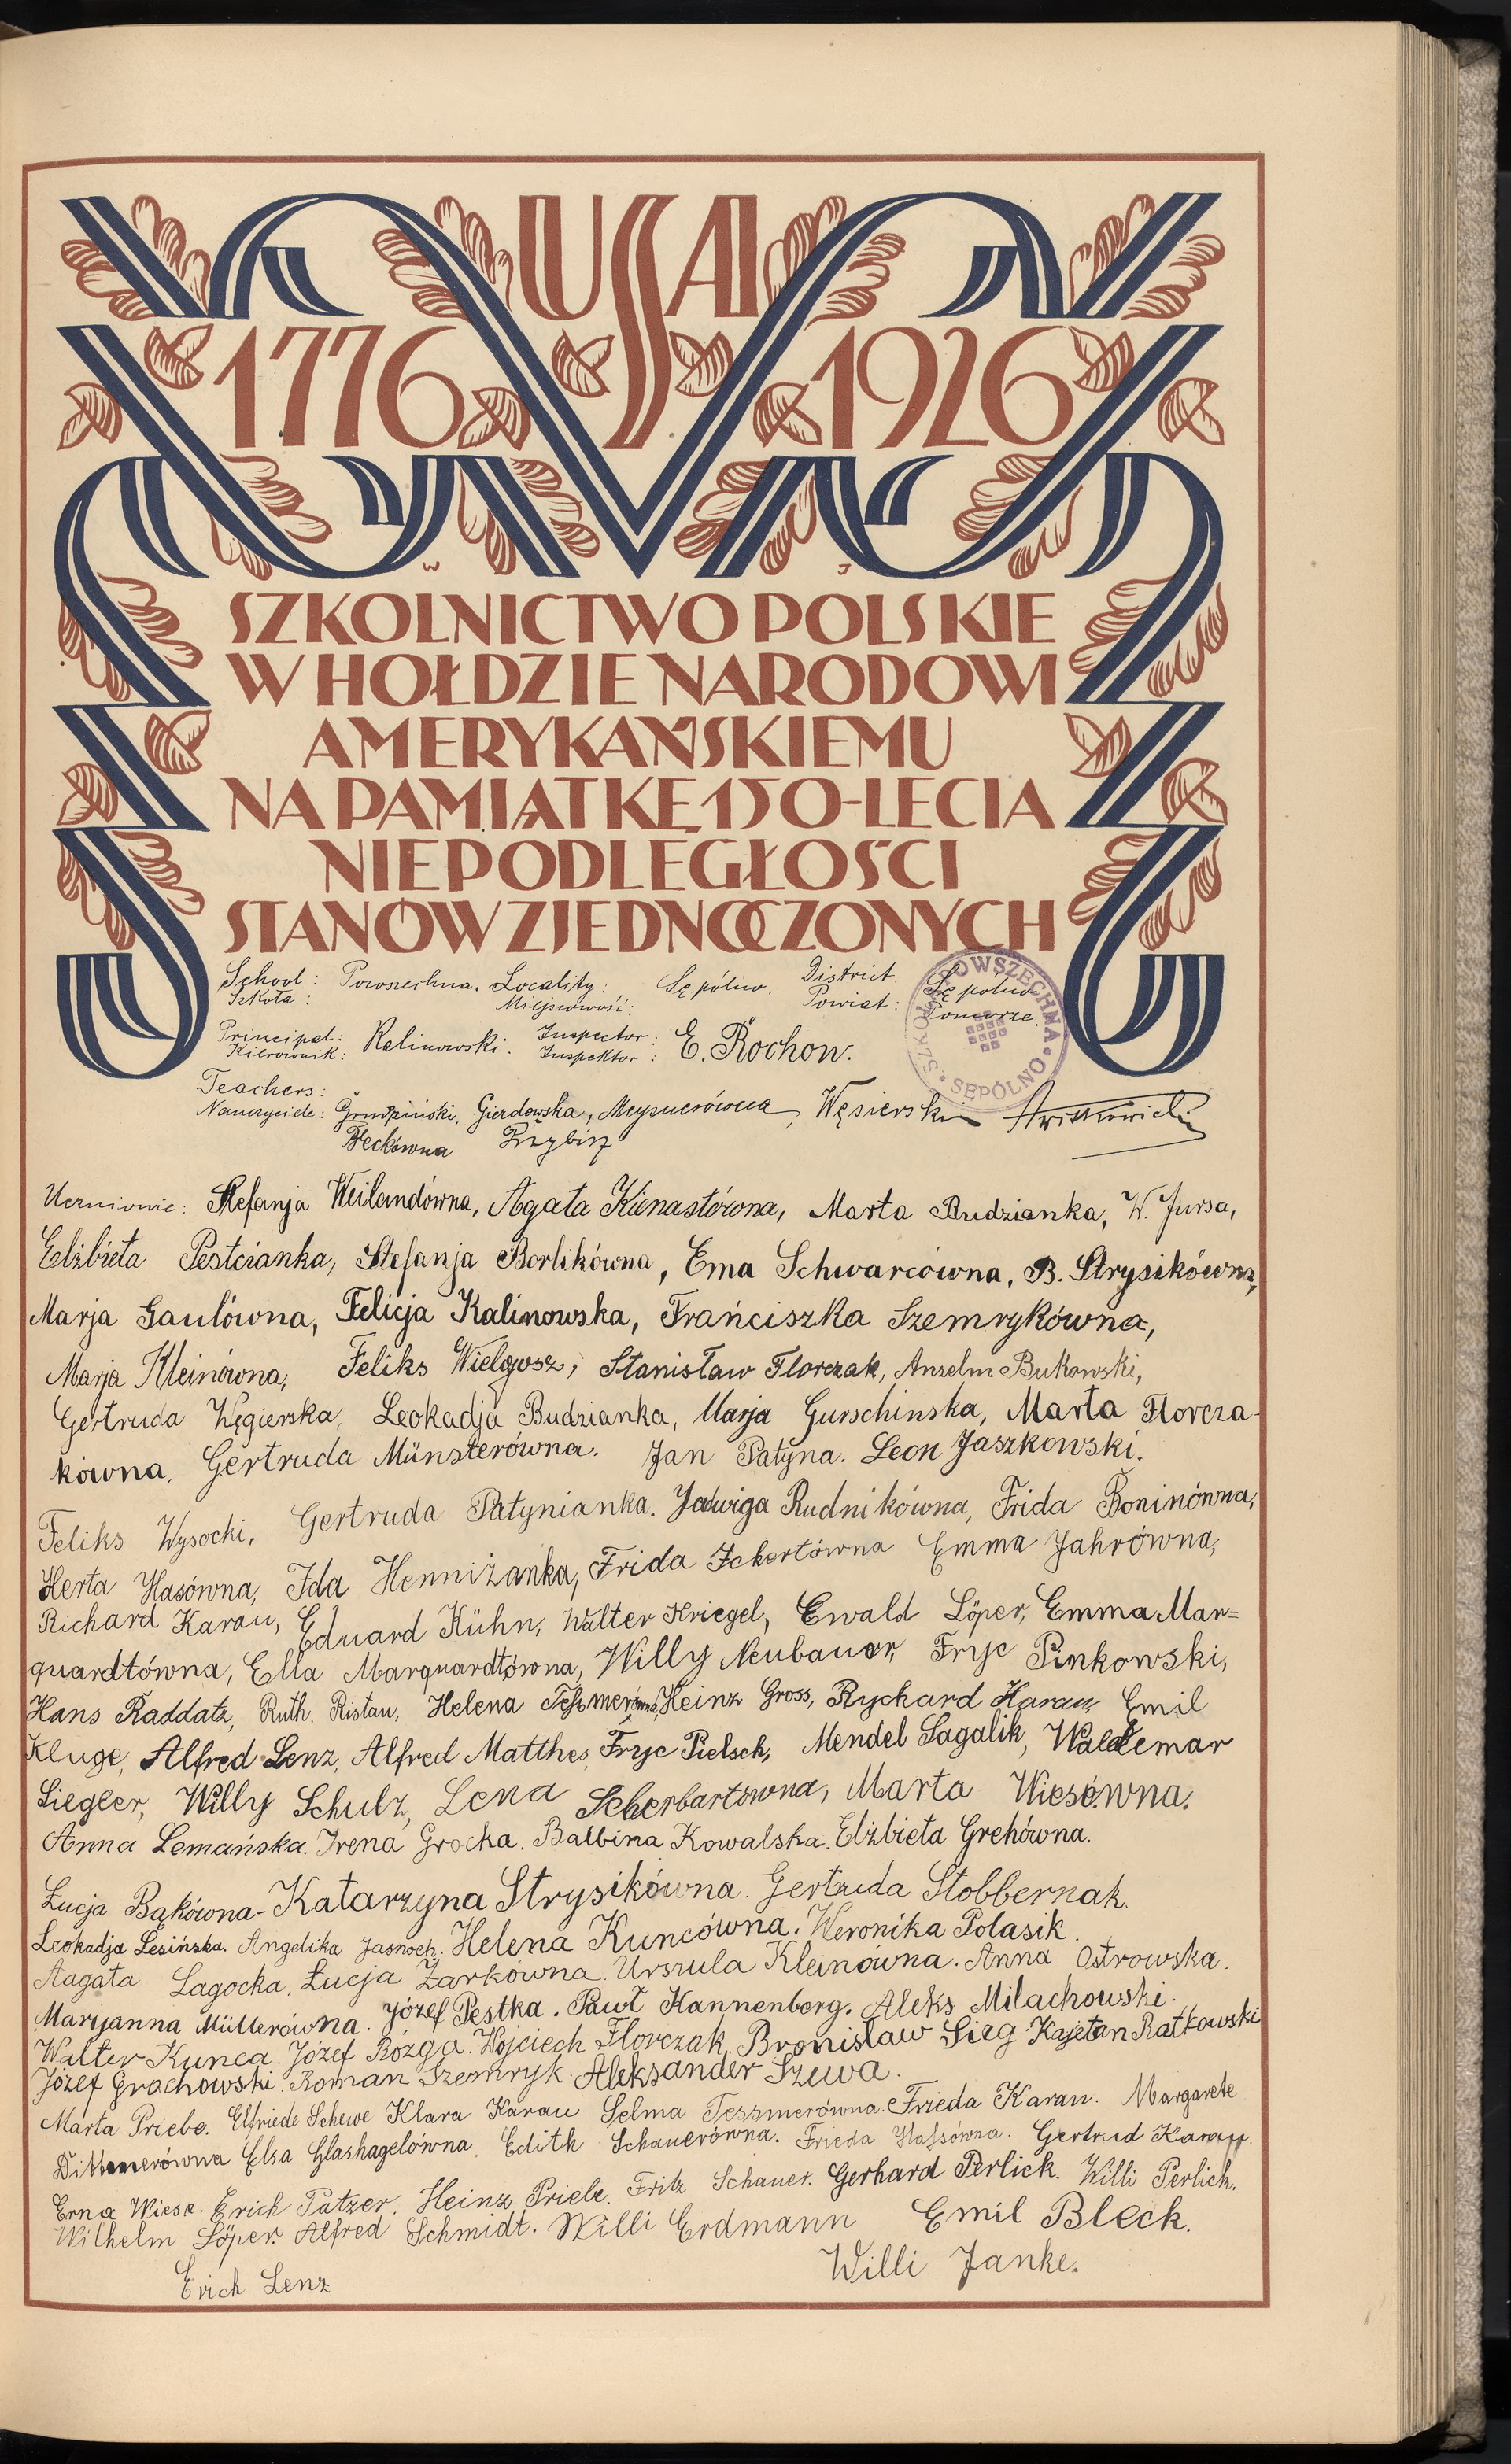 USA
1776 1926
W J
SZKOLNICTWO POLSKIE
W HOŁDZIE NARODOWI
AMERYKAŃSKIEMU
NA PAMIĄTKĘ 150-LECIA
NIEPODLEGŁOŚCI
STANÓW ZJEDNOCZONYCH
School: Powszechna. Locality: Sępólno. District. Sępólno
Szkoła: Miejscowość: Powiat: Pomorze.
Principal: Kalinowski. Inspector: E. Rochon.
Kierownik: Inspektor:
SZKOŁA POWSZECHNA • SĘPÓLNO •
Teachers:
Nauczyciele: Grudpiński, Gierdowska, Meysnerówna, Węsierski
Bleckówna Przybisz
Uczniowie: Stefanja Weilandówna, Agata Kienastówna, Marta Budzianka, W. Jursa,
Elżbieta Pestcianka, Stefanja Borlikówna, Ema Schwarcówna, B. Strysikówna,
Marja Gaulówna, Felicja Kalinowska, Frańciszka Szemrykówna,
Marja Kleinówna, Feliks Wielgosz, Stanisław Florczak, Anselm Bukowski,
Gertruda Węgierska, Leokadja Budzianka, Marja Gurschinska, Marta Florcza-
kówna, Gertruda Münsterówna. Jan Patyna. Leon Jaszkowski.
Feliks Wysocki, Gertruda Patynianka. Jadwiga Rudnikówna, Frida Boninówna,
Herta Hasówna, Ida Henniżanka, Frida Ickertówna Emma Jahrówna,
Richard Karau, Eduard Kühn, Walter Kriegel, Ewald Löper, Emma Mar=
quardtówna, Ella Marquardtówna, Willy Neubauer, Fryc Pinkowski,
Hans Raddatz, Ruth. Ristau, Helena Teßmerówna, Heinz Gross, Ryckard Karau, Emil
Kluge, Alfred Lenz, Alfred Matthes, Fryc Pielsch, Mendel Sagalik, Waldemar
Siegler, Willy Schulz, Lena Scherbartówna, Marta Wiesówna.
Anna Lemańska. Irena Grocka. Balbina Kowalska. Elżbieta Grehówna.
Łucja Bąkówna- Katarzyna Strysikówna. Gertruda Stobbernak.
Leokadja Lesińska. Angelika Jasnoch. Helena Kuncówna. Weronika Polasik.
Aagata Lagocka, Łucja Żarkówna. Urszula Kleinówna. Anna Ostrowska.
Maryanna Müllerówna. Józef Pestka. Pawł Kannenberg. Aleks Milachowski.
Walter Kunca. Józef Rózga. Wojciech Florczak, Bronisław Sieg Kajetan Ratkowski
Józef Grochowski. Roman Szemryk. Aleksander Szewa.
Marta Priebe. Elfriede Schewe Klara Karau Selma Tessmerówna. Frieda Karau. Margarete
Dittmerówna Elsa Glashagelówna. Edith Schauerówna. Frieda Haßówna. Gertrud Karau.
Erna Wiese. Erich Patzer. Heinz Priebe. Fritz Schauer. Gerhard Perlick. Willi Perlick.
Wilhelm Löper. Alfred Schmidt. Willi Erdmann Emil Bleck.
Erich Lenz Willi Janke.